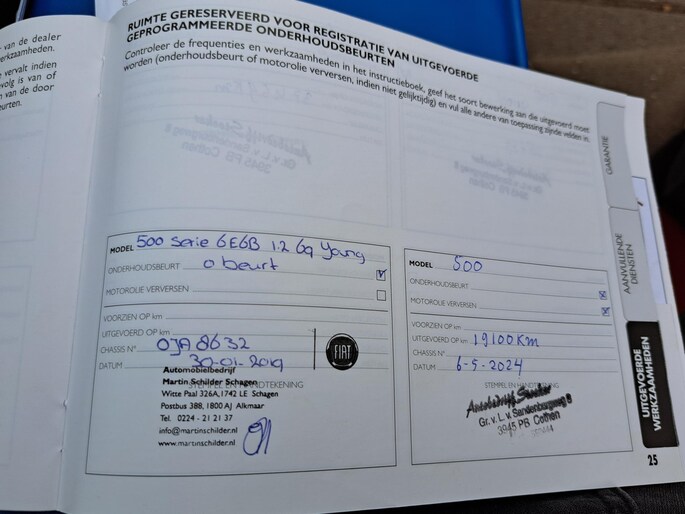 van de dealer
werkzaamheden.
vervalt indien
volg is van of
van de door
eurten.
RUIMTE GERESERVEERD VOOR REGISTRATIE VAN UITGEVOERDE
GEPROGRAMMEERDE ONDERHOUDSBEURTEN
Controleer de frequenties en werkzaamheden in het instructieboek, geef het soort bewerking aan die uitgevoerd moet
worden (onderhoudsbeurt of motorolie verversen, indien niet gelijktijdig) en vul alle andere van toepassing zijnde velden in.
MODEL 500 Serie 6E6B 1.2 69 Young
ONDERHOUDSBEURT 0 beurt
MOTOROLIE VERVERSEN
VOORZIEN OP km
UITGEVOERD OP km
CHASSIS N° OJA8632
DATUM 30-01-2019
STEMPEL EN HANDTEKENING
FIAT
Automobielbedrijf
Martin Schilder Schagen
Witte Paal 326A, 1742 LE Schagen
Postbus 388, 1800 AJ Alkmaar
Tel. 0224 - 21 21 37
info@martinschilder.nl
www.martinschilder.nl
MODEL 500
ONDERHOUDSBEURT
MOTOROLIE VERVERSEN
VOORZIEN OP km
UITGEVOERD OP km 19100 Km
CHASSIS N°
DATUM 6-5-2024
STEMPEL EN HANDTEKENING
Autobedrijf
Gr. v. L. v. Sandenburgweg 8
3945 PB Cothen
GARANTIE
AANVULLENDE
DIENSTEN
UITGEVOERDE
WERKZAAMHEDEN
25